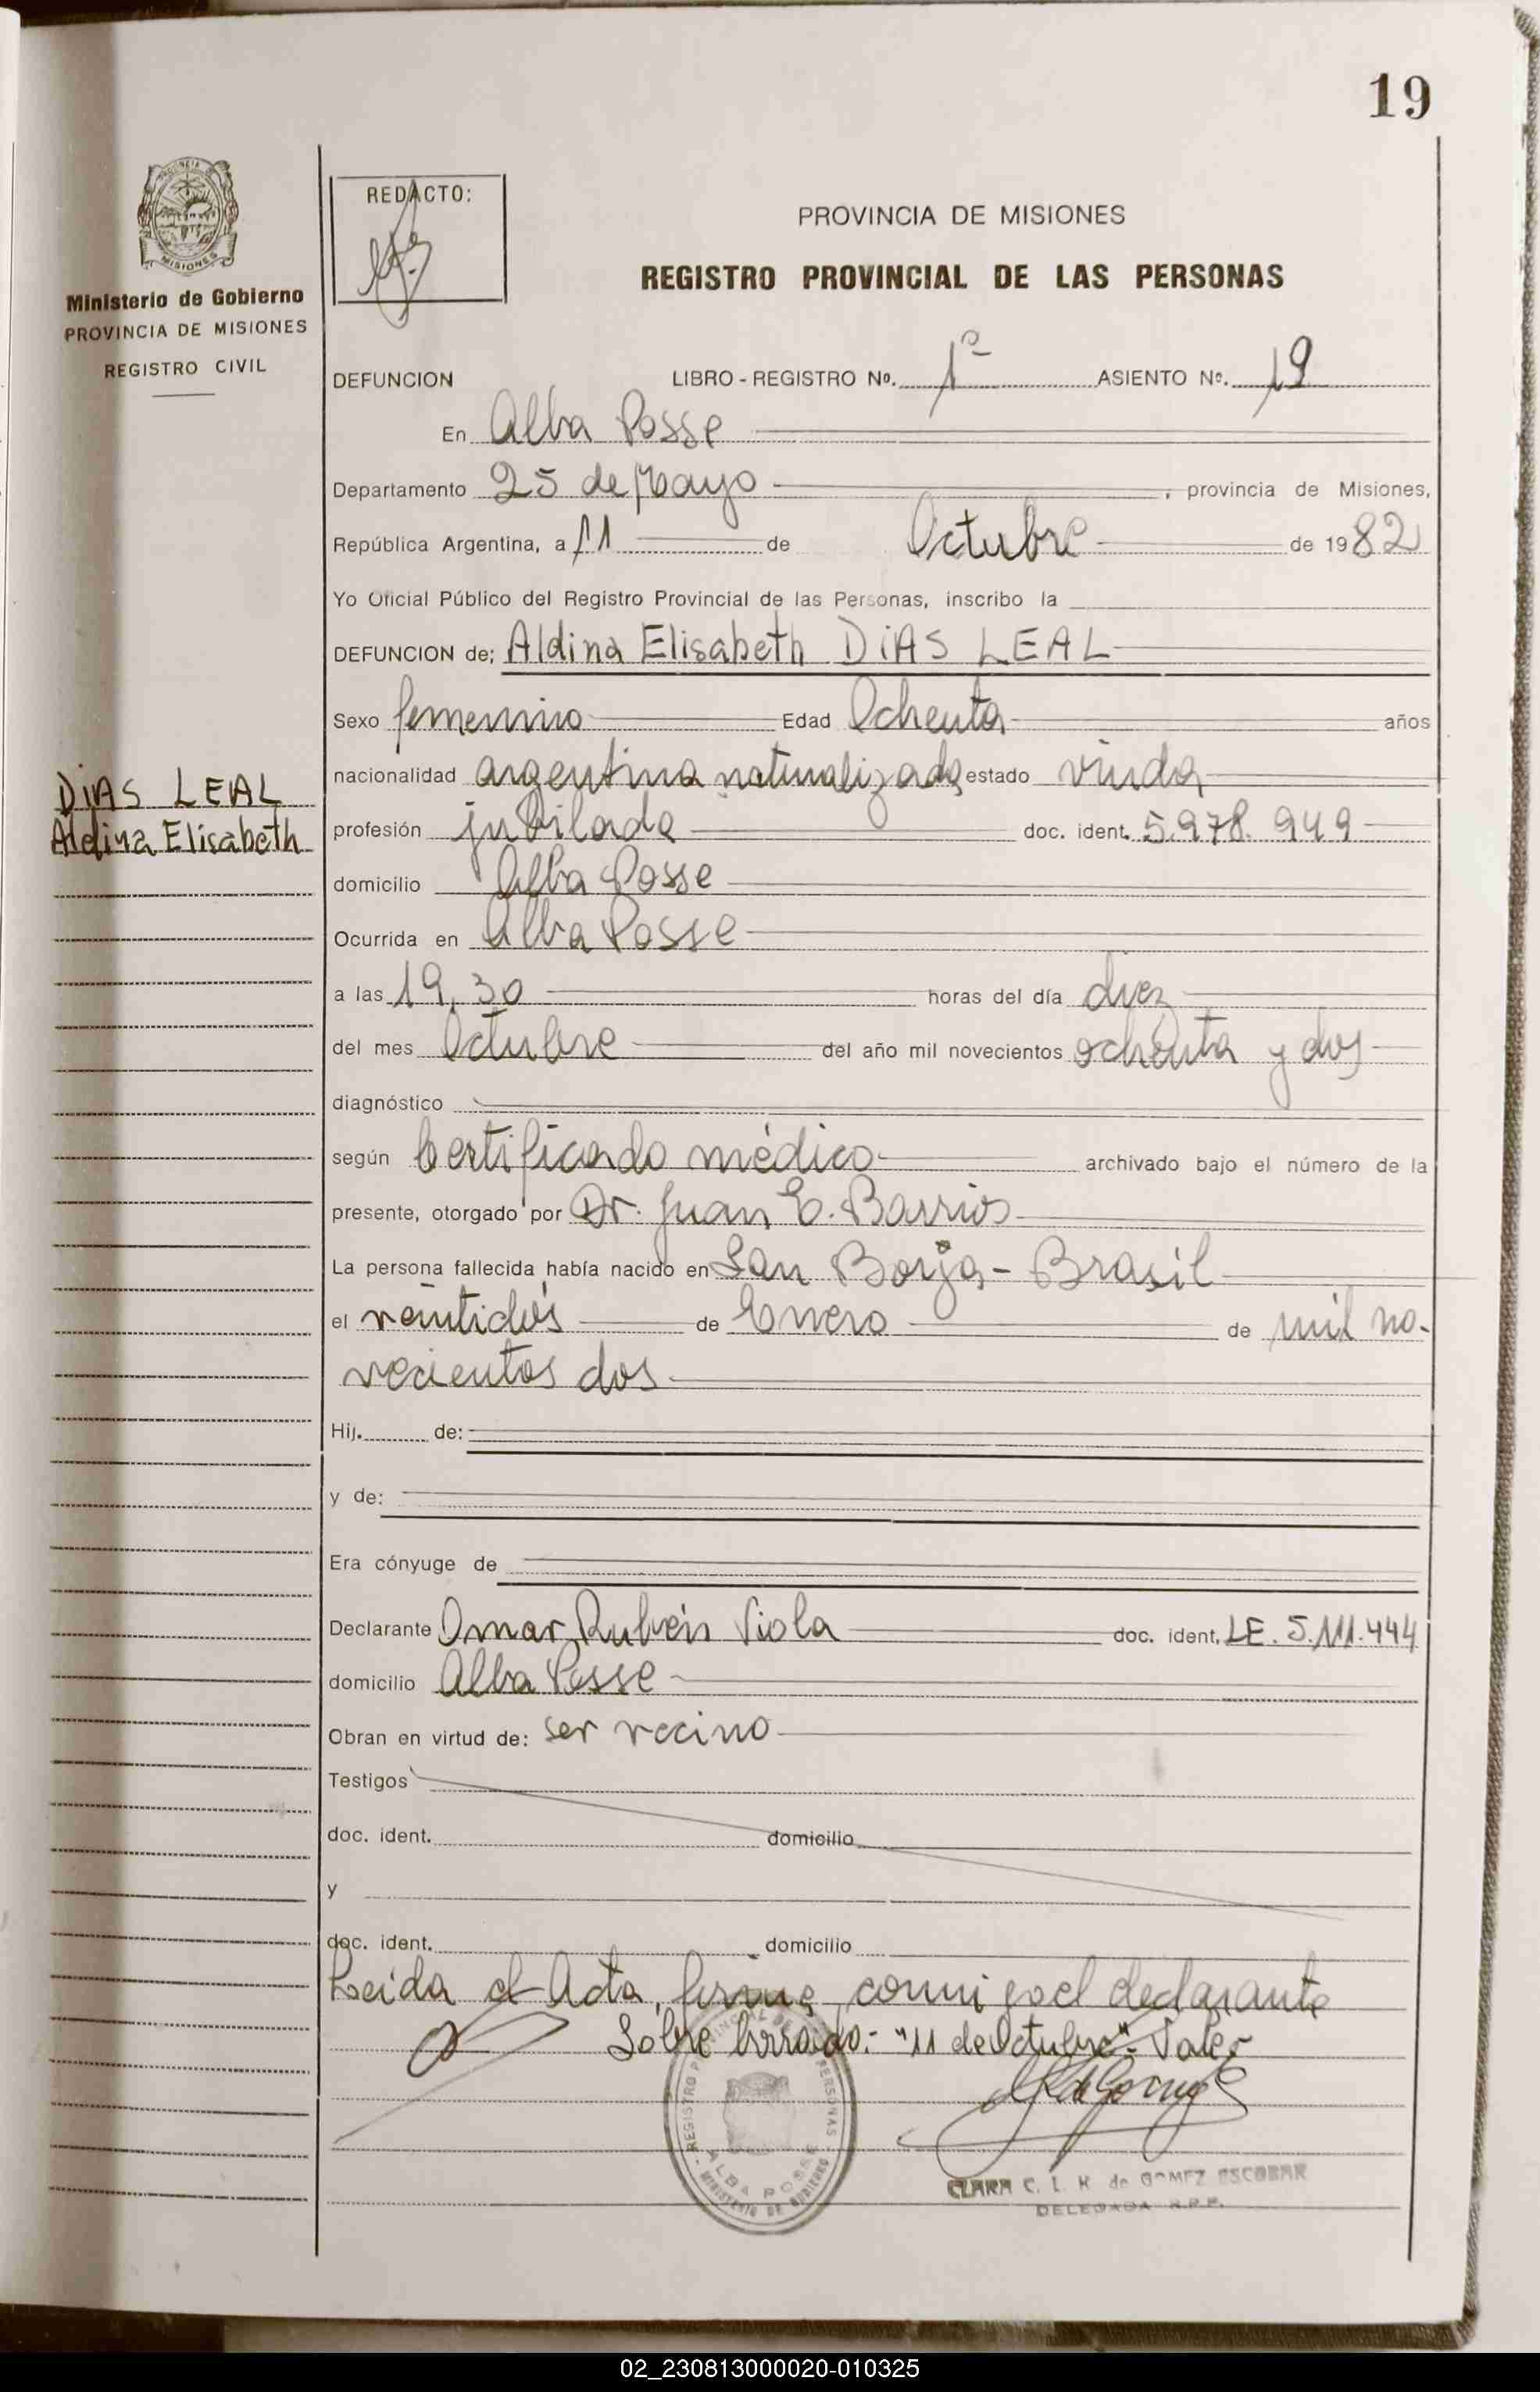 19
PROVINCIA DE
MISIONES
Ministerio de Gobierno
PROVINCIA DE MISIONES
REGISTRO CIVIL
REDACTO:
PROVINCIA DE MISIONES
REGISTRO PROVINCIAL DE LAS PERSONAS
DEFUNCION LIBRO - REGISTRO No. 1º ASIENTO No. 19
En Alba Posse
Departamento 25 de Mayo, provincia de Misiones,
República Argentina, a 11 de Octubre de 1982
Yo Oficial Público del Registro Provincial de las Personas, inscribo la
DEFUNCION de; Aldina Elisabeth DiAS LEAL
Sexo femenino Edad Ochenta años
nacionalidad argentina naturalizada estado viuda
DiAS LEAL
Aldina Elisabeth
profesión jubilada doc. ident. 5.978.949
domicilio Alba Posse
Ocurrida en Alba Posse
a las 19,30 horas del día diez
del mes Octubre del año mil novecientos ochenta y dos
diagnóstico
según Certificado médico archivado bajo el número de la
presente, otorgado por Dr. Juan C. Barrios
La persona fallecida había nacido en San Borja - Brasil
el veintidós de Enero de mil no-
vecientos dos
Hij. de:
y de:
Era cónyuge de
Declarante Omar Rubén Viola doc. ident. LE. 5.111.444
domicilio Alba Posse
Obran en virtud de: ser vecino
Testigos
doc. ident. domicilio
y
doc. ident. domicilio
Leida el Acta, firma conmigo el declarante
Sobre borrado: "11 de Octubre" Vale
REGISTRO PROVINCIAL DE LAS PERSONAS
ALBA POSSE
MINISTERIO DE GOBIERNO
CLARA C. L. K de GOMEZ ESCOBAR
DELEGADA R.P.P.
02_230813000020-010325